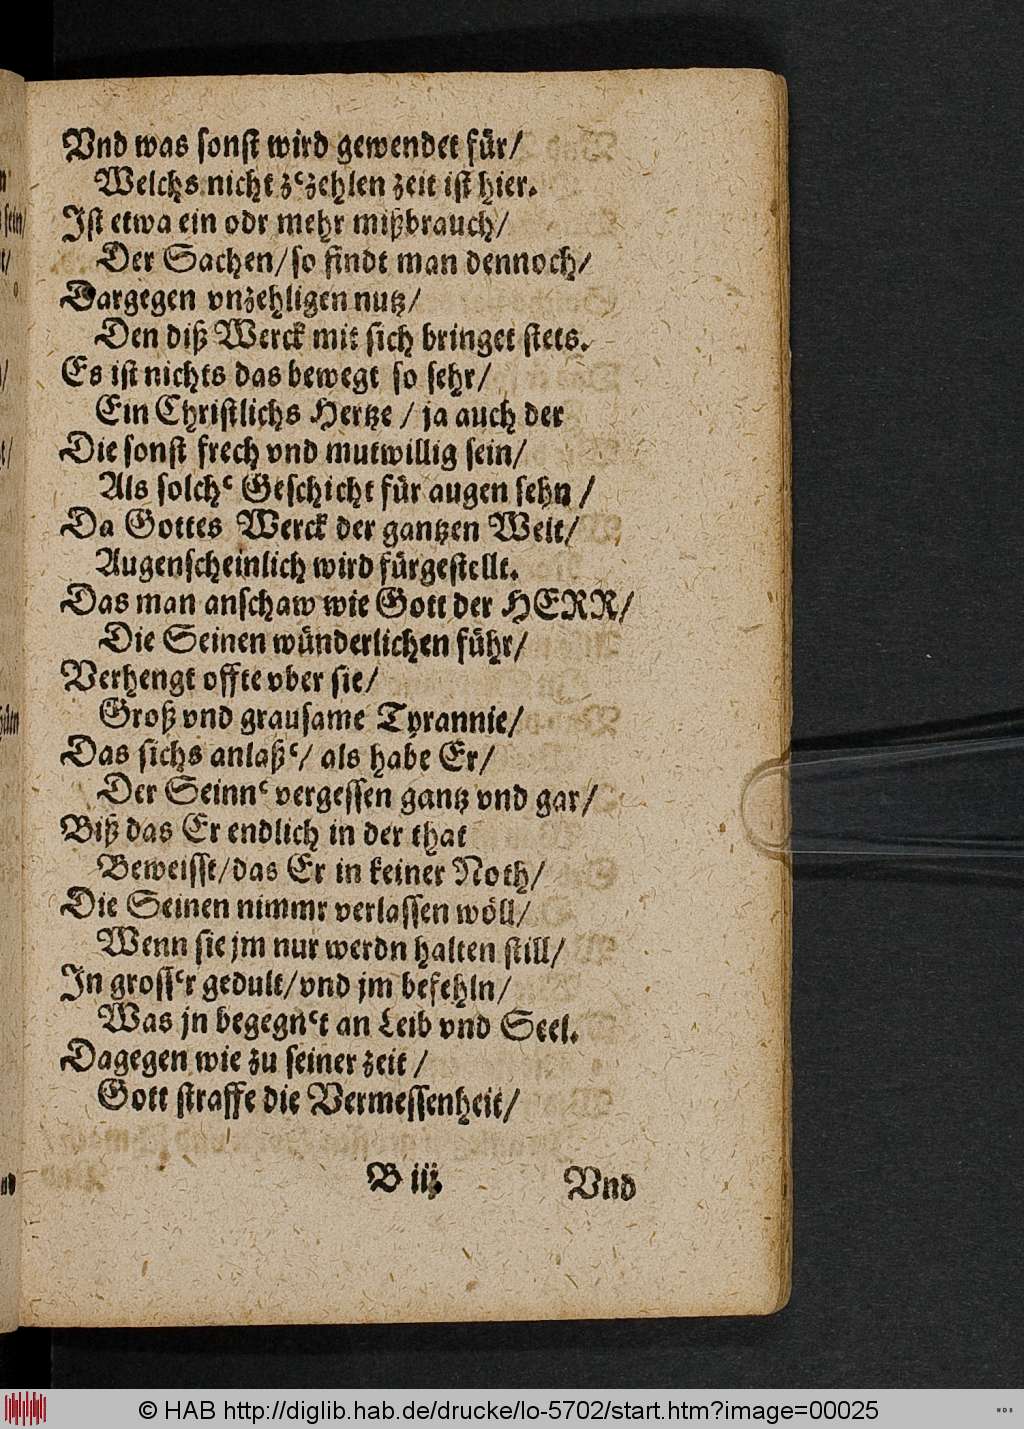 Vnd was sonst wird gewendet für/
Welchs nicht z'zehlen zeit ist hier.
Ist etwa ein odr mehr mißbrauch/
Der Sachen/so findt man dennoch/
Dargegen vnzehligen nutz/
Den diß Werck mit sich bringet stets.
Es ist nichts das bewegt so sehr/
Ein Christlichs Hertze / ja auch der
Die sonst frech vnd mutwillig sein/
Als solch' Geschicht für augen sehn /
Da Gottes Werck der gantzen Welt/
Augenscheinlich wird fürgestellt.
Das man anschaw wie Gott der HERR/
Die Seinen wünderlichen führ/
Verhengt offte vber sie/
Groß vnd grausame Tyrannie/
Das sichs anlaß'/ als habe Er/
Der Seinn' vergessen gantz vnd gar/
Biß das Er endlich in der that
Beweisst/das Er in keiner Noth/
Die Seinen nimmr verlassen wöll/
Wenn sie jm nur werdn halten still/
In gross'r gedult/vnd jm befehln/
Was jn begegn't an Leib vnd Seel.
Dagegen wie zu seiner zeit /
Gott straffe die Vermessenheit/
B iij
Vnd
© HAB http://diglib.hab.de/drucke/lo-5702/start.htm?image=00025